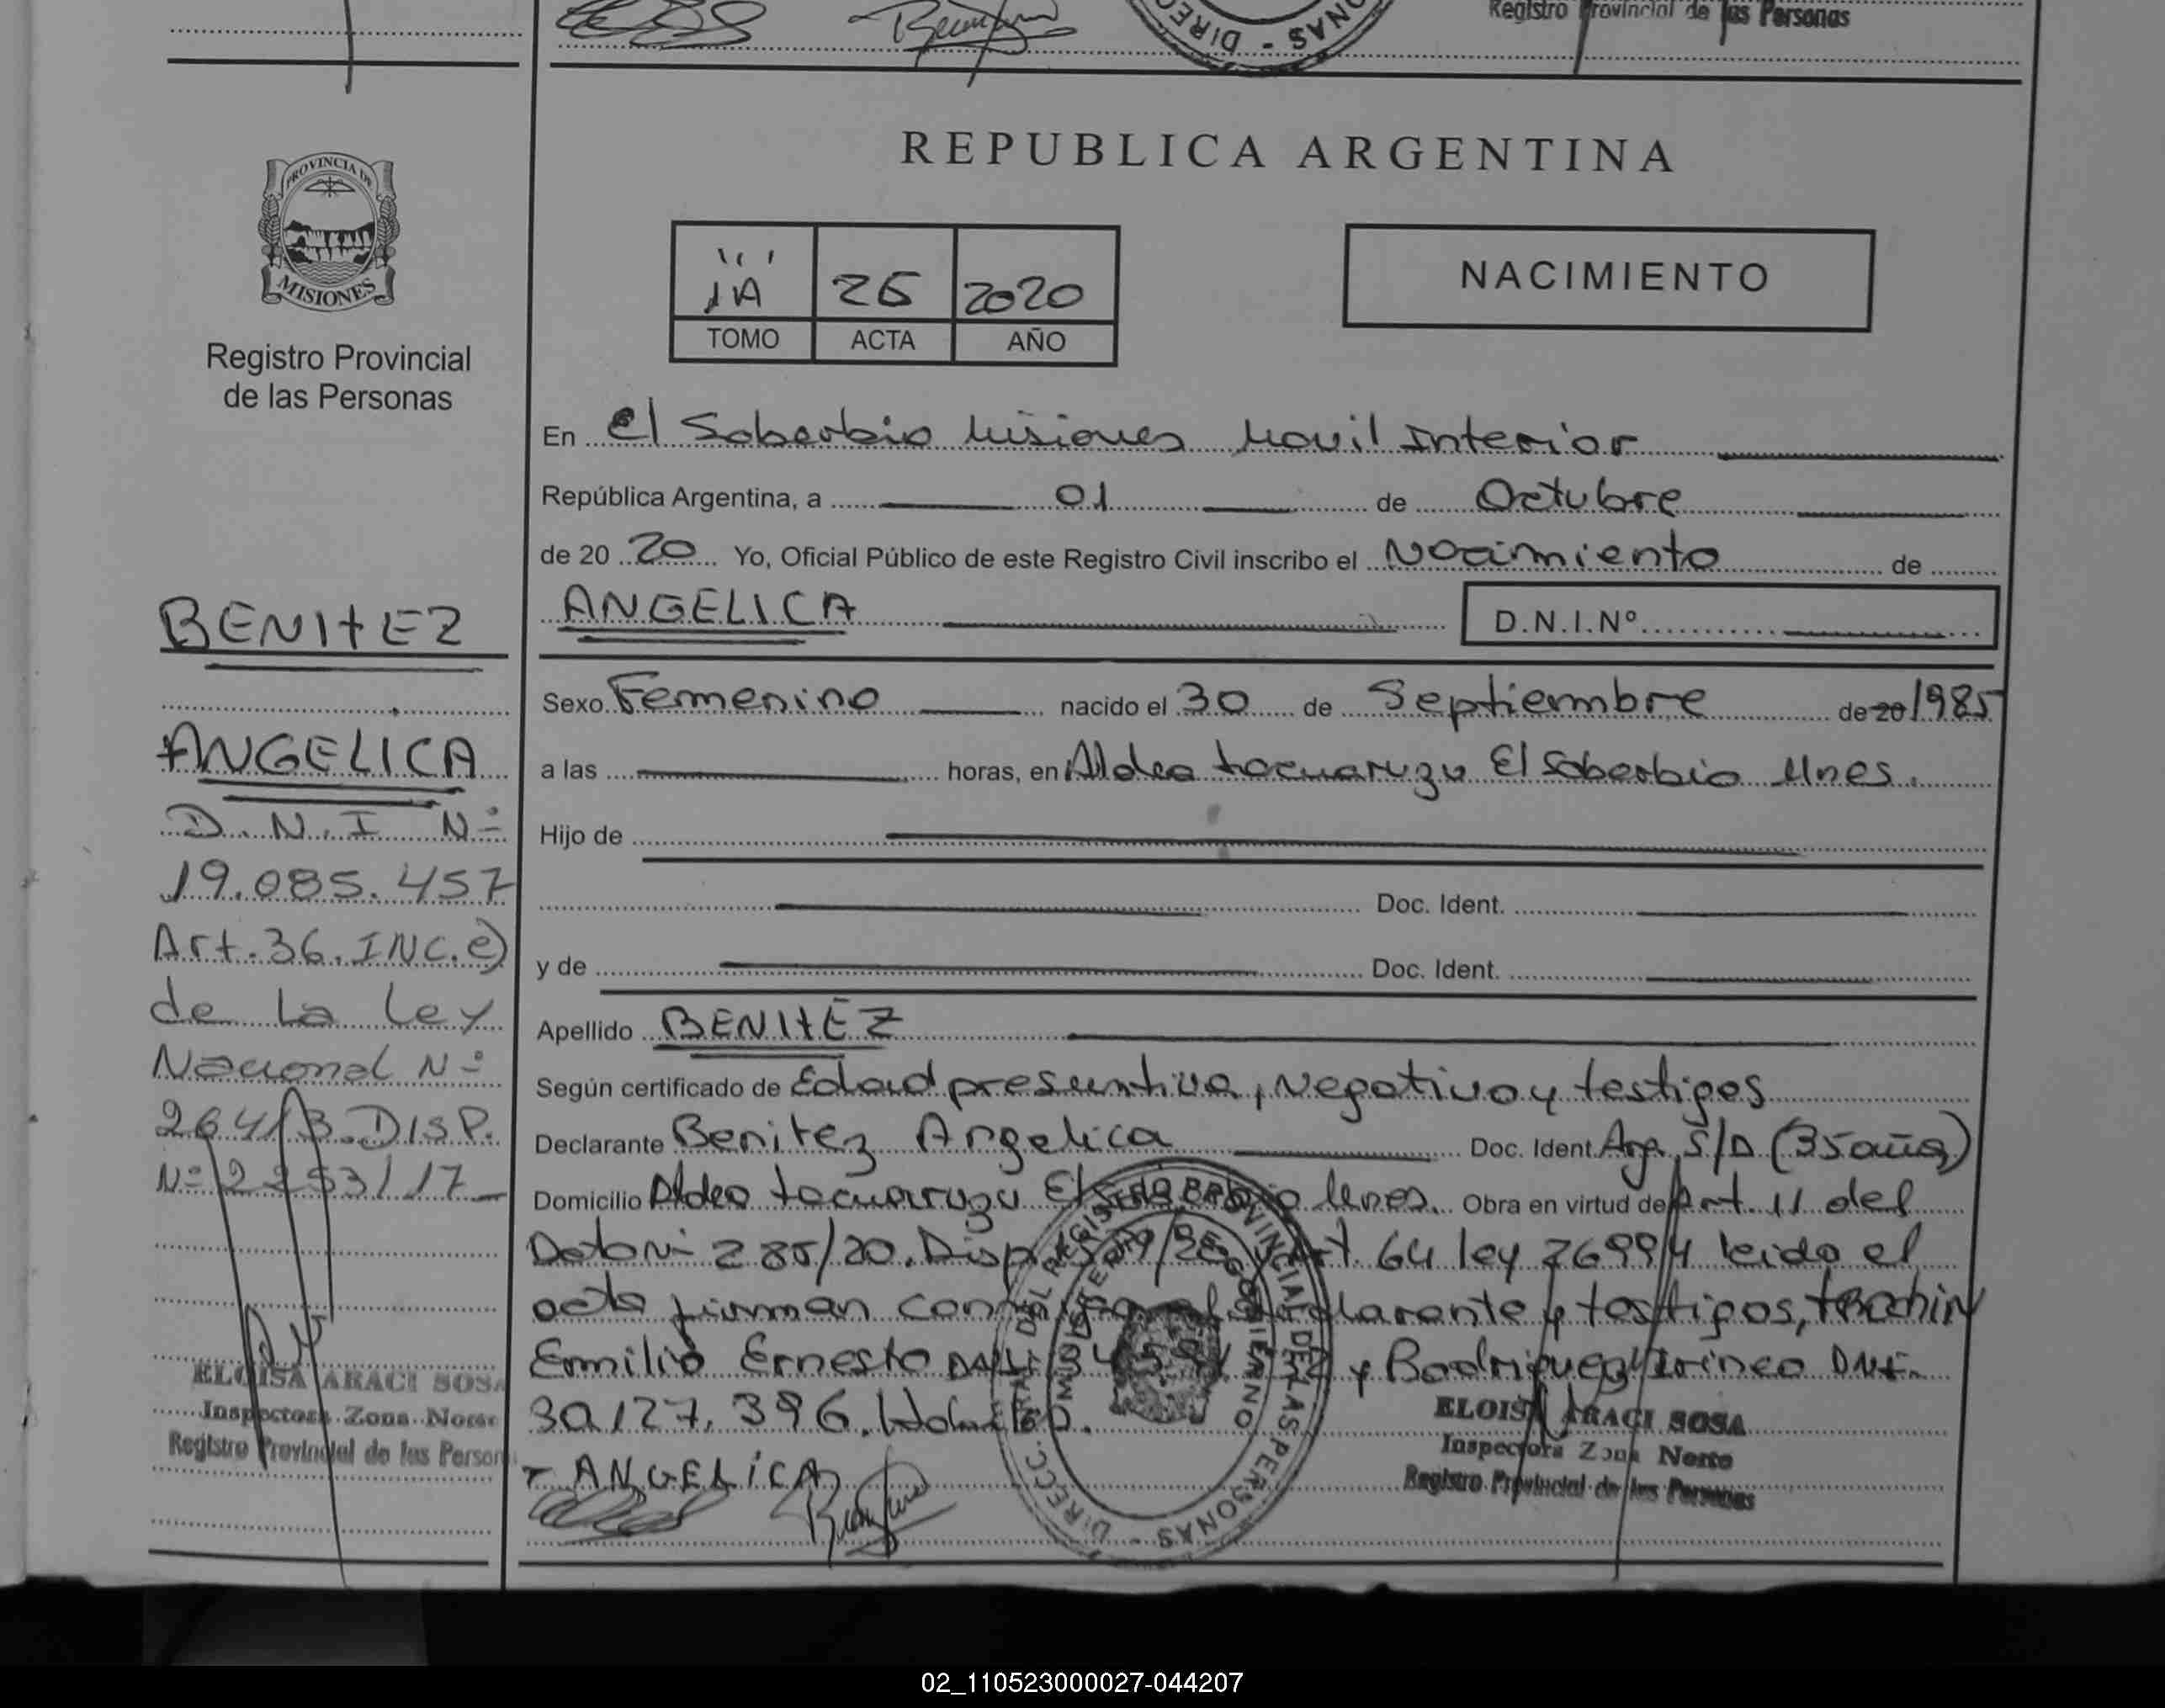 Registro Provincial de las Personas
DIREC
NAS
REPUBLICA ARGENTINA
PROVINCIA DE
MISIONES
Registro Provincial
de las Personas
1A 26 2020
TOMO ACTA AÑO
NACIMIENTO
En El Soberbio Misiones Movil Interior
República Argentina, a 01 de Octubre
de 20 20 Yo, Oficial Público de este Registro Civil inscribo el Nacimiento de
ANGELICA D.N.I.Nº
Sexo Femenino nacido el 30 de Septiembre de 20 1985
a las horas, en Aldea tacuaruzu El Soberbio Mnes.
Hijo de
Doc. Ident.
y de Doc. Ident.
Apellido BENITEZ
Según certificado de Edad presuntiva, Negativo y testigos
Declarante Benitez Angelica Doc. Ident. Arg. S/D (35 años)
Domicilio Aldea tacuaruzu El Soberbio Mnes. Obra en virtud de Art. 11 del
Dcto Nº 285/20. Disp Art. 64 ley 26994 leido el
acta firman declarante y testigos,
Emilio Ernesto y Rodriguez Irineo DNI.
30.127.396.
ANGELICA
BENITEZ
ANGELICA
D.N.I Nº
19.085.457
Art. 36. INC. e)
de La Ley
Nacional Nº
26413. DISP.
Nº 2253/17
ELOISA ARACI SOSA
Inspectora Zona Norte
Registro Provincial de las Person
DIRECC. GRAL. DEL REGISTRO PROVINCIAL DE LAS PERSONAS
MINISTERIO DE GOBIERNO
ELOISA ARACI SOSA
Inspectora Zona Norte
Registro Provincial de las Personas
02_110523000027-044207